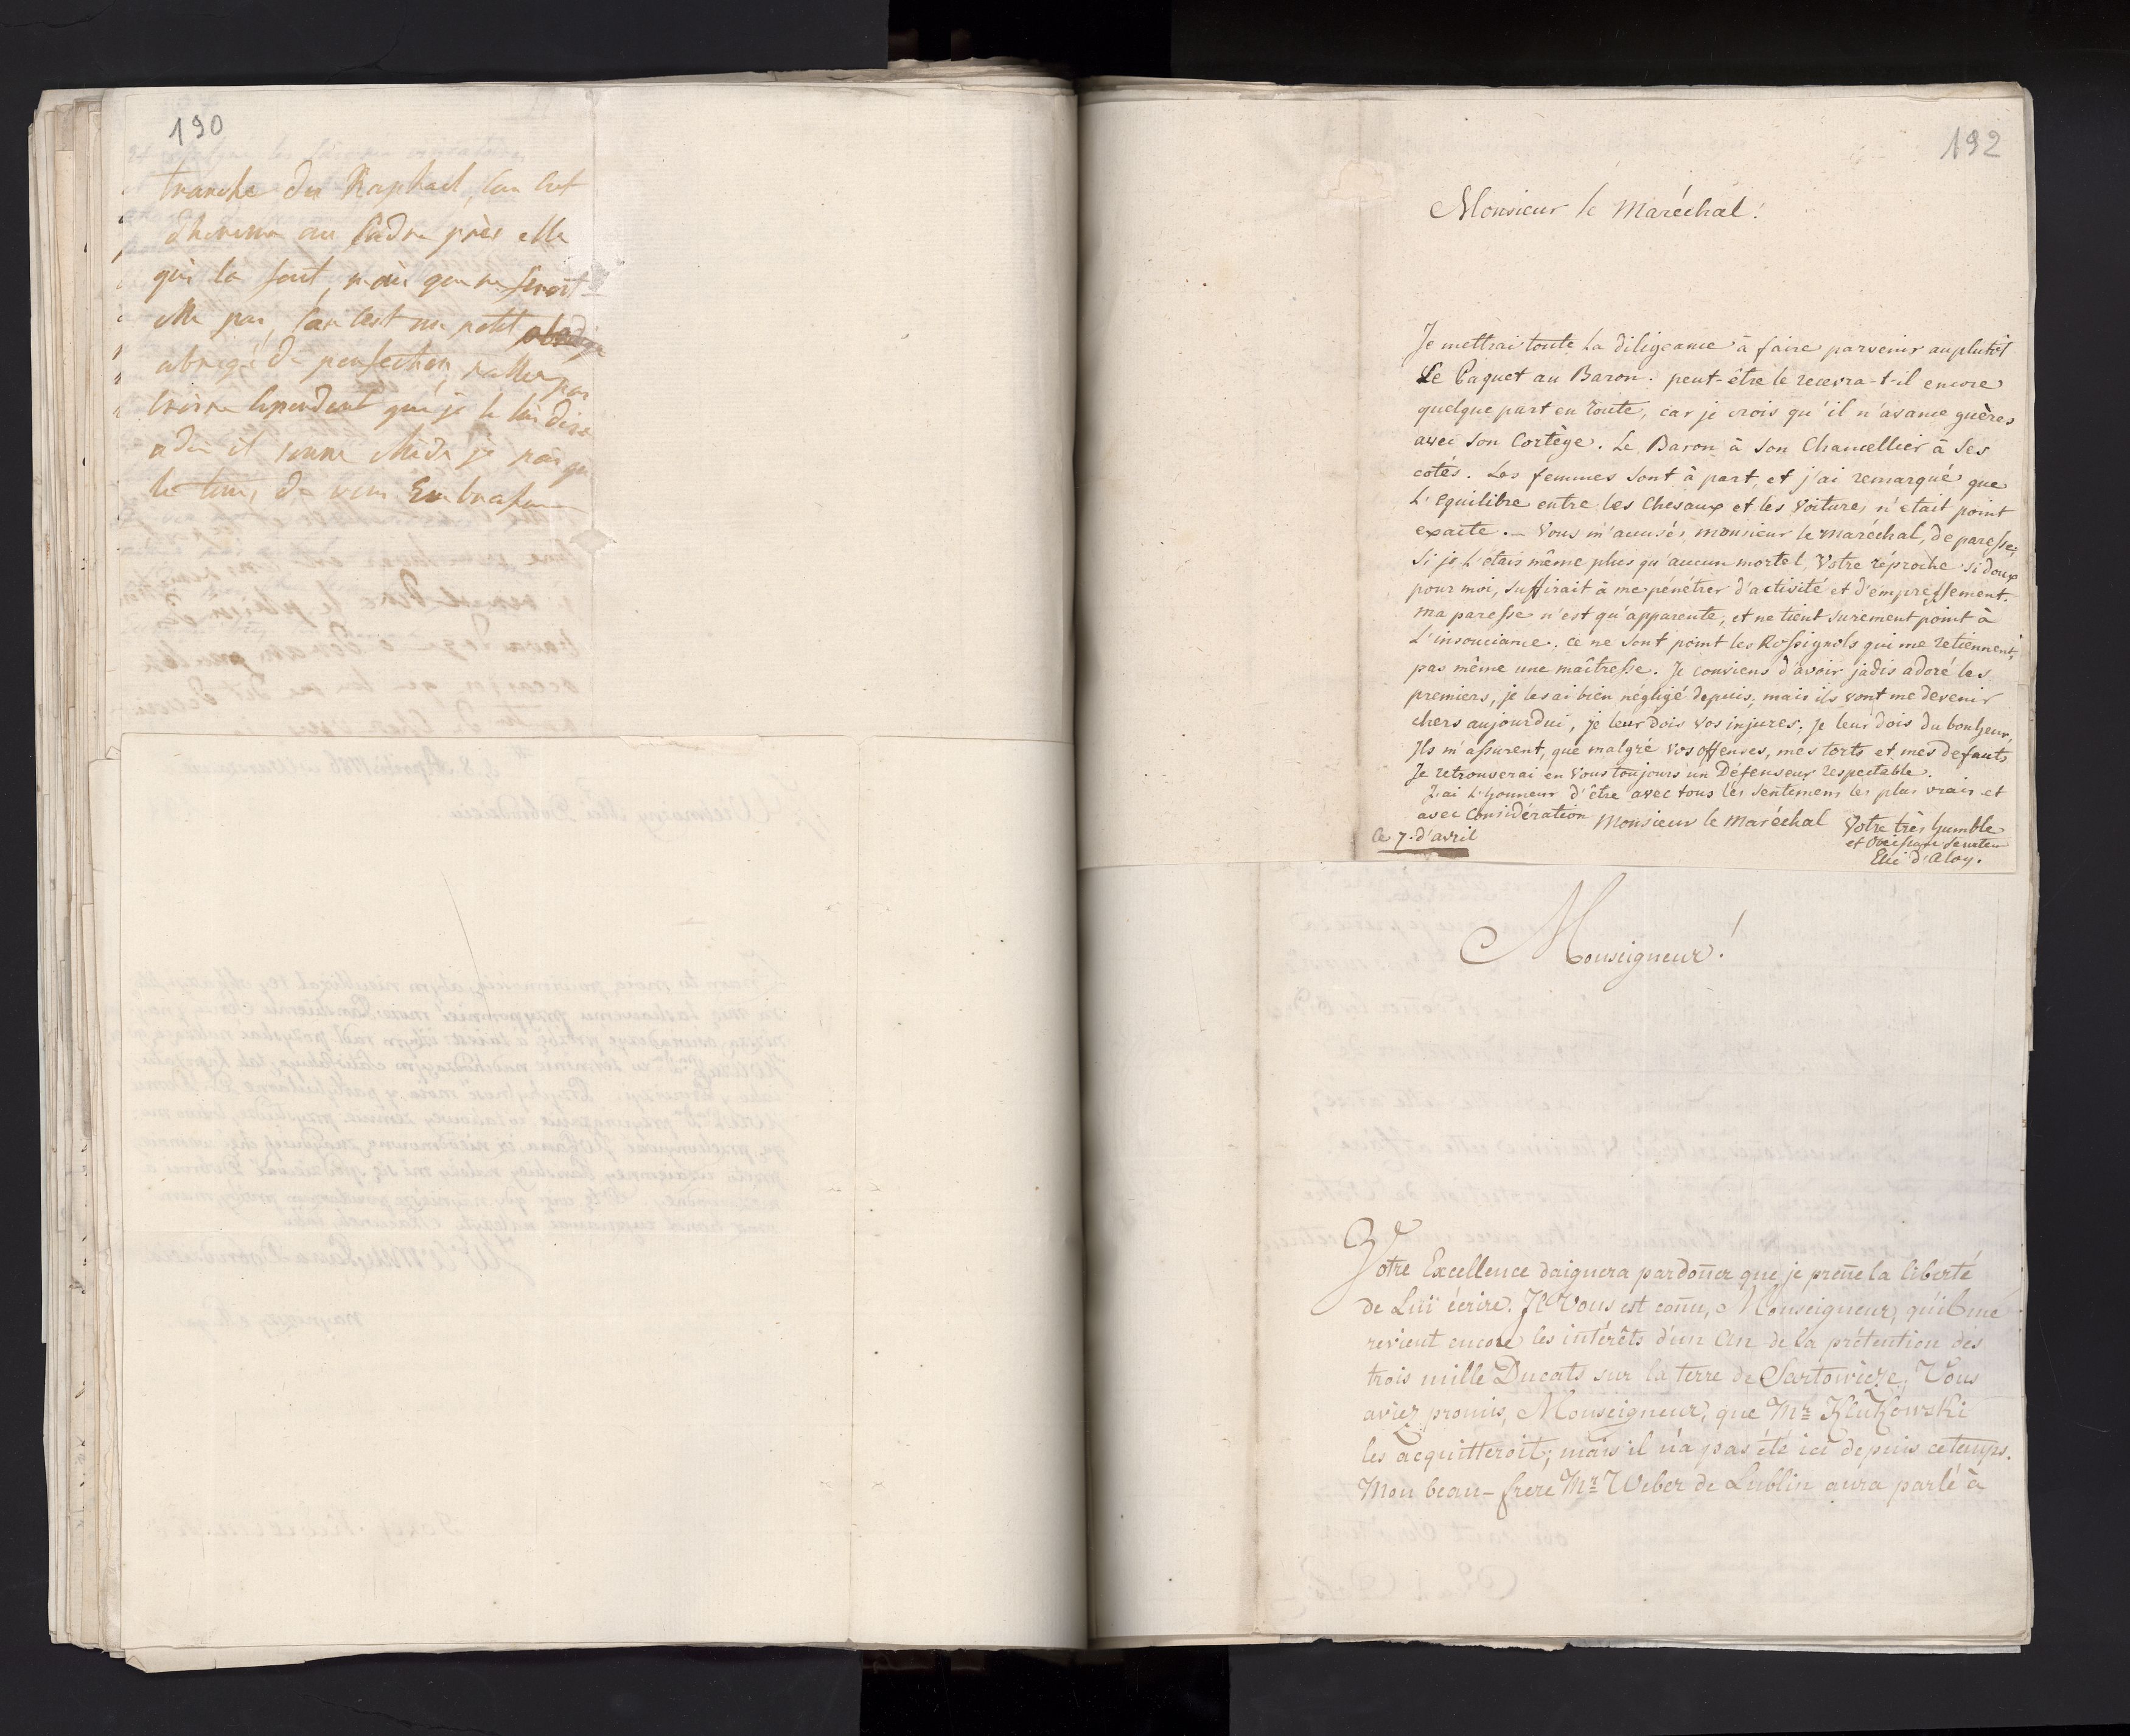 190
tranche du Raphael, car cest
au Cadre près elle
qui la fait, mais que ne feroit
elle pas, car cest un petit
abregé de perfection, nallez pas
croire cependent que je le lui dise
adieu il sonne Midi je nai que
le tems de vous Embrasser
192
Monsieur le Maréchal!
Je mettrai toute la diligeance à faire parvenir auplutôt
Le Paquet au Baron. peut-être le recevra-t-il encore
quelque part en route, car je crois qu'il n'avance guères
avec son Cortège. Le Baron à son Chancellier à ses
cotés. Les femmes sont à part, et j'ai remarqué que
L'equilibre entre les Chevaux et les Voitures n'etait point
exacte. — Vous m'accusés, monsieur le maréchal, de paresse;
Si je l'etais même plus qu'aucun mortel, Votre réproche si doux
pour moi, suffirait à me pénétrer d'activité et d'empressement.
ma paresse n'est qu'apparente, et ne tient surement point à
L'insouciance. ce ne sont point les Rossignols qui me retiennent,
pas même une maîtresse. Je conviens d'avoir jadis adoré les
premiers, je les ai bien négligé depuis, mais ils vont me devenir
chers aujourdui, je leur dois vos injures; je leur dois du bonheur,
Ils m'assurent, que malgré vos offenses, mes torts et mes defauts
Je retrouverai en Vous toujours un Défenseur respectable.
J'ai l'honneur d'être avec tous les sentimens les plus vrais et
avec Considération Monsieur le maréchal Votre très humble
ce 7. d'avril
et Serviteur
d'Aloy.
Monseigneur!
Votre Excellence daignera pardoñer que je preñe la liberté
de Lui écrire. Il Vous est coñu, Monseigneur, qu'il me
revient encore les intérêts d'un An de la prétention des
trois mille Ducats sur la terre de Sartowicze. Vous
aviez promis, Monseigneur, que Mr Klukowski
les acquitteroit; mais il n'a pas été ici depuis ce temps.
Mon beau-frere Mr Weber de Lublin aura parlé à